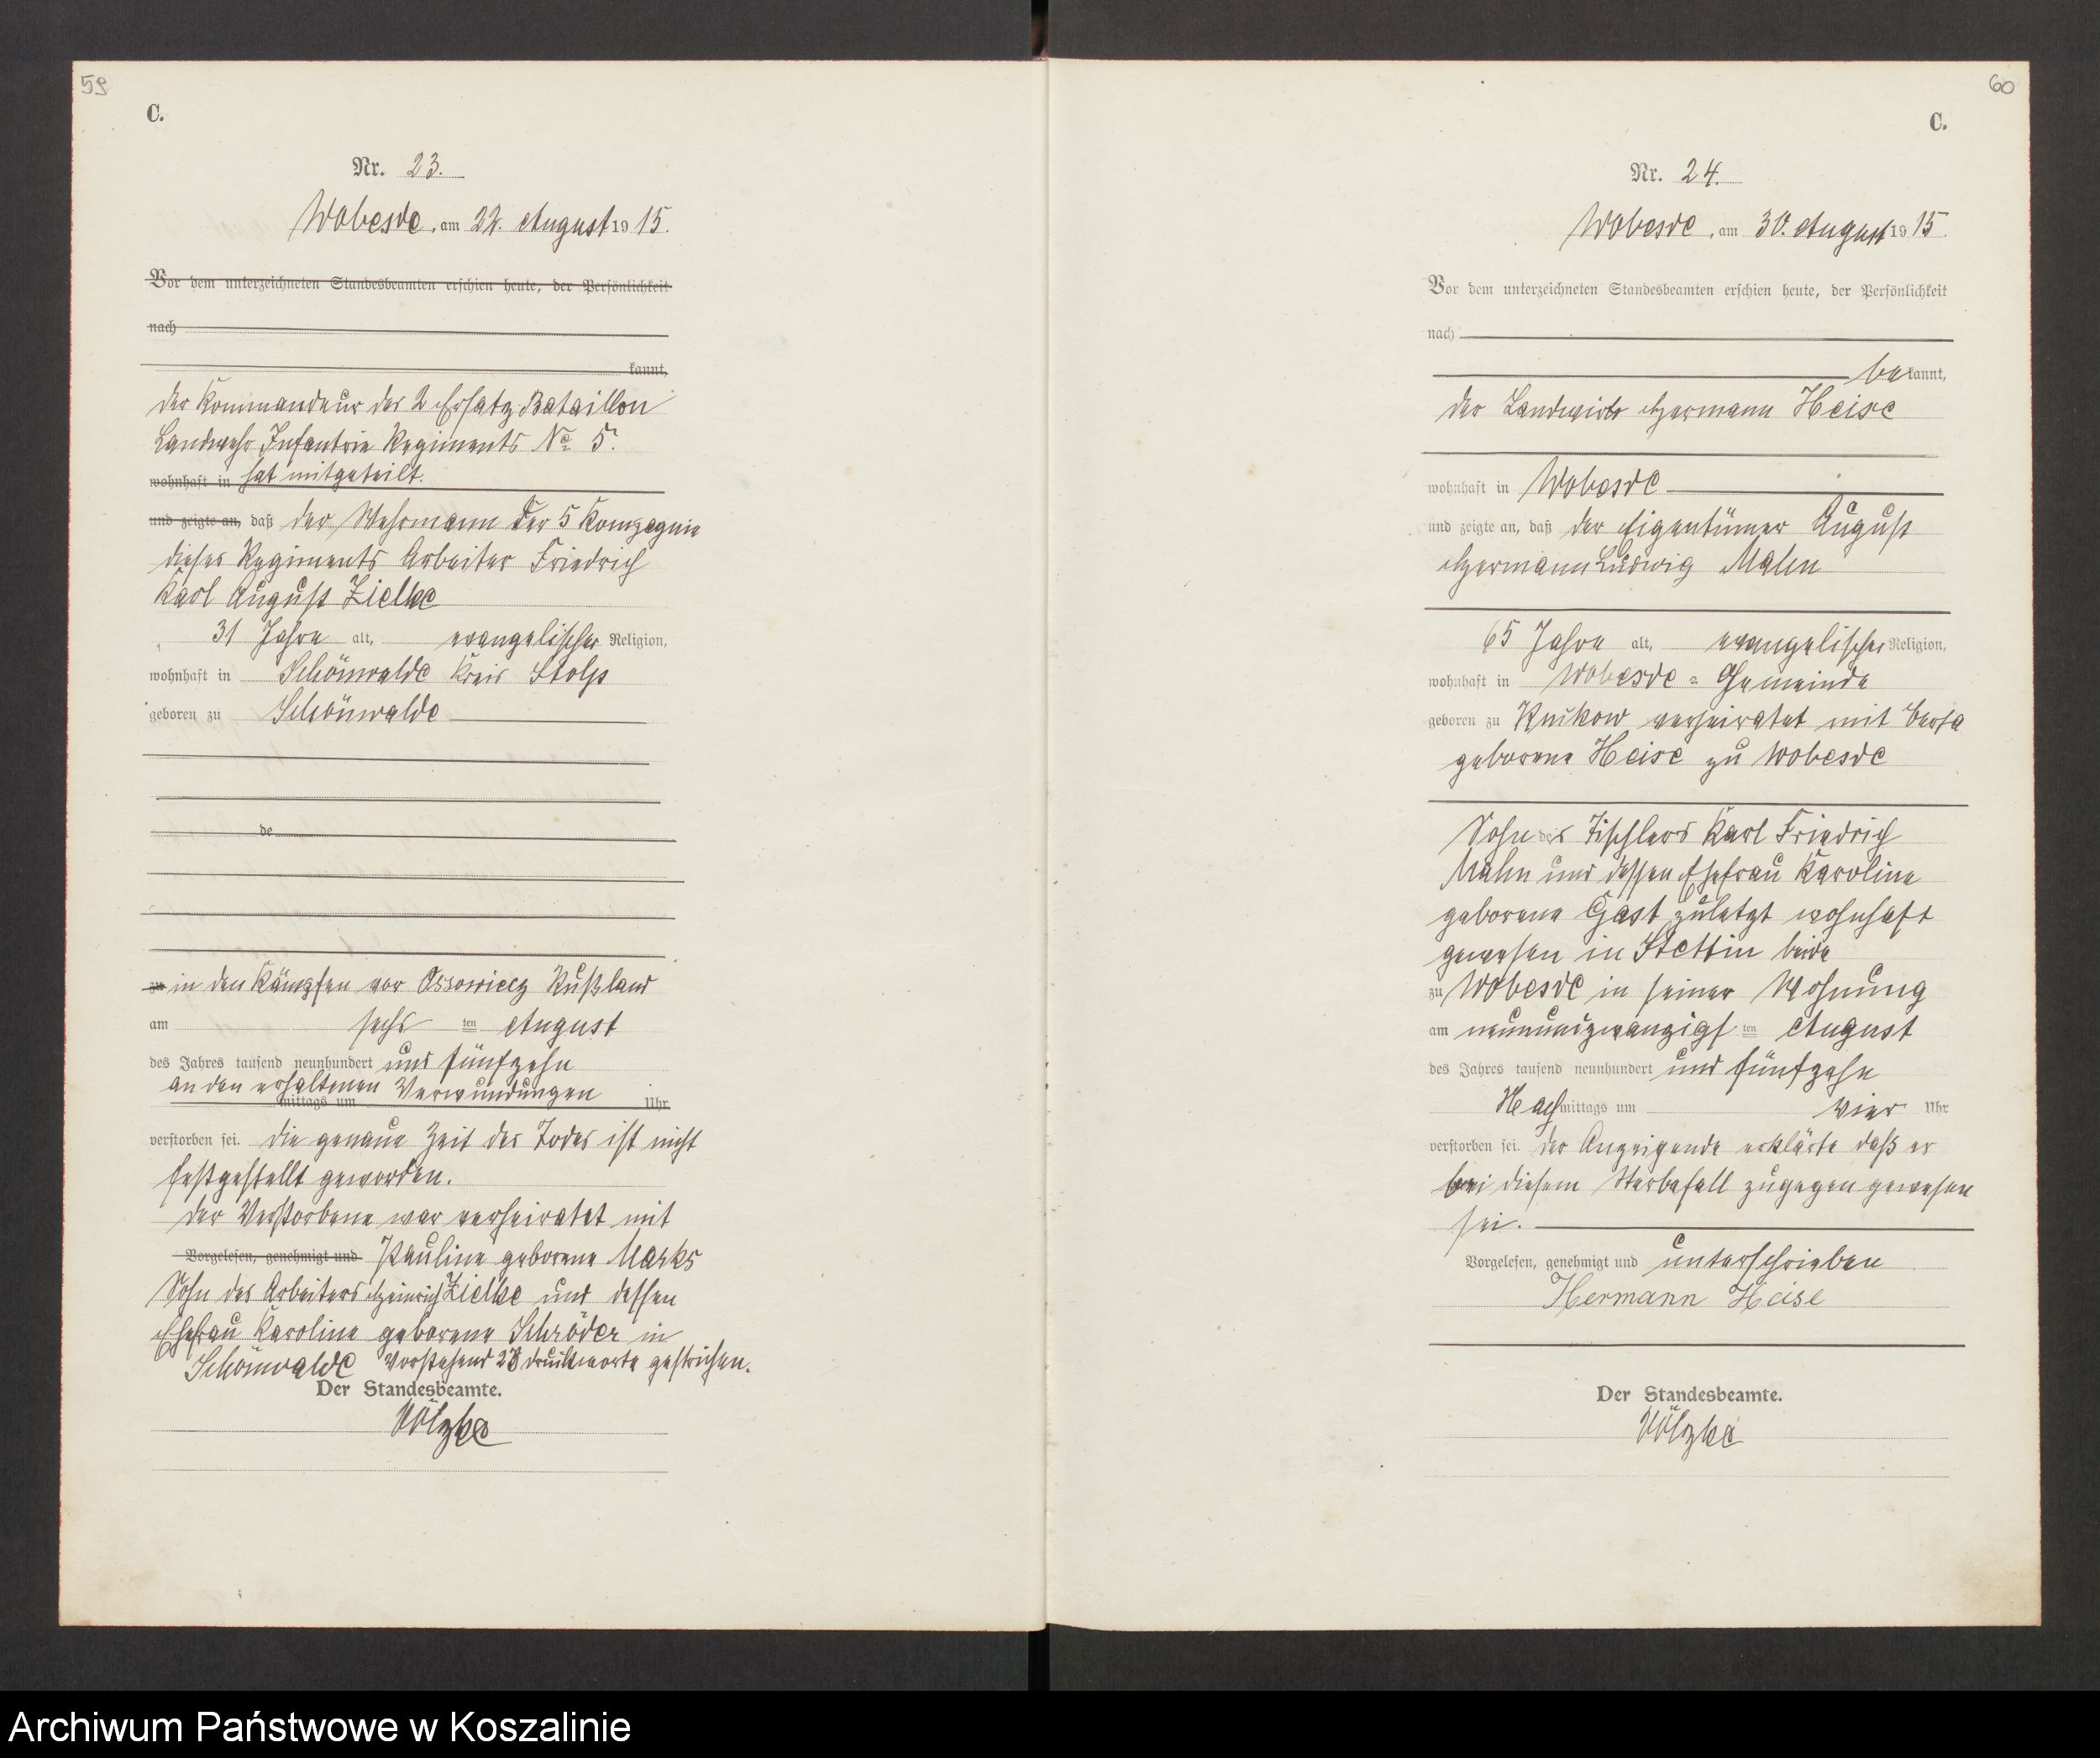 59
C.
Nr. 23.
Wobesde, am 22. August 1915.
Vor dem unterzeichneten Standesbeamten erschien heute, der Persönlichkeit
nach
kannt,
der Kommandeur des 2 Ersatz Bataillon
Landwehr Infantrie Regiments No 5.
wohnhaft in hat mitgeteilt.
und zeigte an, daß der Wehrmann der 5 Kompagnie
dieses Regiments Arbeiter Friedrich
Karl August Zielke
31 Jahre alt, evangelischer Religion,
wohnhaft in Schönwalde Kreis Stolp
geboren zu Schönwalde
de
zu in den Kämpfen vor Ossowiecz Rußland
am sechs ten August
des Jahres tausend neunhundert und fünfzehn
an den erhaltenen Verwundungen
mittags um Uhr
verstorben sei. die genaue Zeit des Todes ist nicht
festgestellt geworden.
Der Verstorbene war verheiratet mit
Vorgelesen, genehmigt und Pauline geborene Marks
Sohn des Arbeiters Heinrich Zielke und dessen
Ehefrau Karoline geborene Schröder in
Schönwalde Vorstehend 23 Druckworte gestrichen.
Der Standesbeamte.
Völzke
60
C.
Nr. 24.
Wobesde, am 30. August 1915.
Vor dem unterzeichneten Standesbeamten erschien heute, der Persönlichkeit
nach
bekannt,
der Landwirt Hermann Heise
wohnhaft in Wobesde
und zeigte an, daß der Eigentümer August
Hermann Ludwig Malen
65 Jahre alt, evangelischer Religion,
wohnhaft in Wobesde = Gemeinde
geboren zu verheiratet mit
geborene Heise zu Wobesde
Sohn des Tischlers Karl Friedrich
Malen und dessen Ehefrau Karoline
geborene Gast zuletzt wohnhaft
gewesen in Stettin beide
zu Wobesde in seiner Wohnung
am neunundzwanzigs ten August
des Jahres tausend neunhundert und fünfzehn
Nachmittags um vier Uhr
verstorben sei. Der Anzeigende erklärte daß er
bei diesem Sterbefall zugegen gewesen
sei.
Vorgelesen, genehmigt und unterschrieben
Hermann Heise
Der Standesbeamte.
Völzke
Archiwum Państwowe w Koszalinie